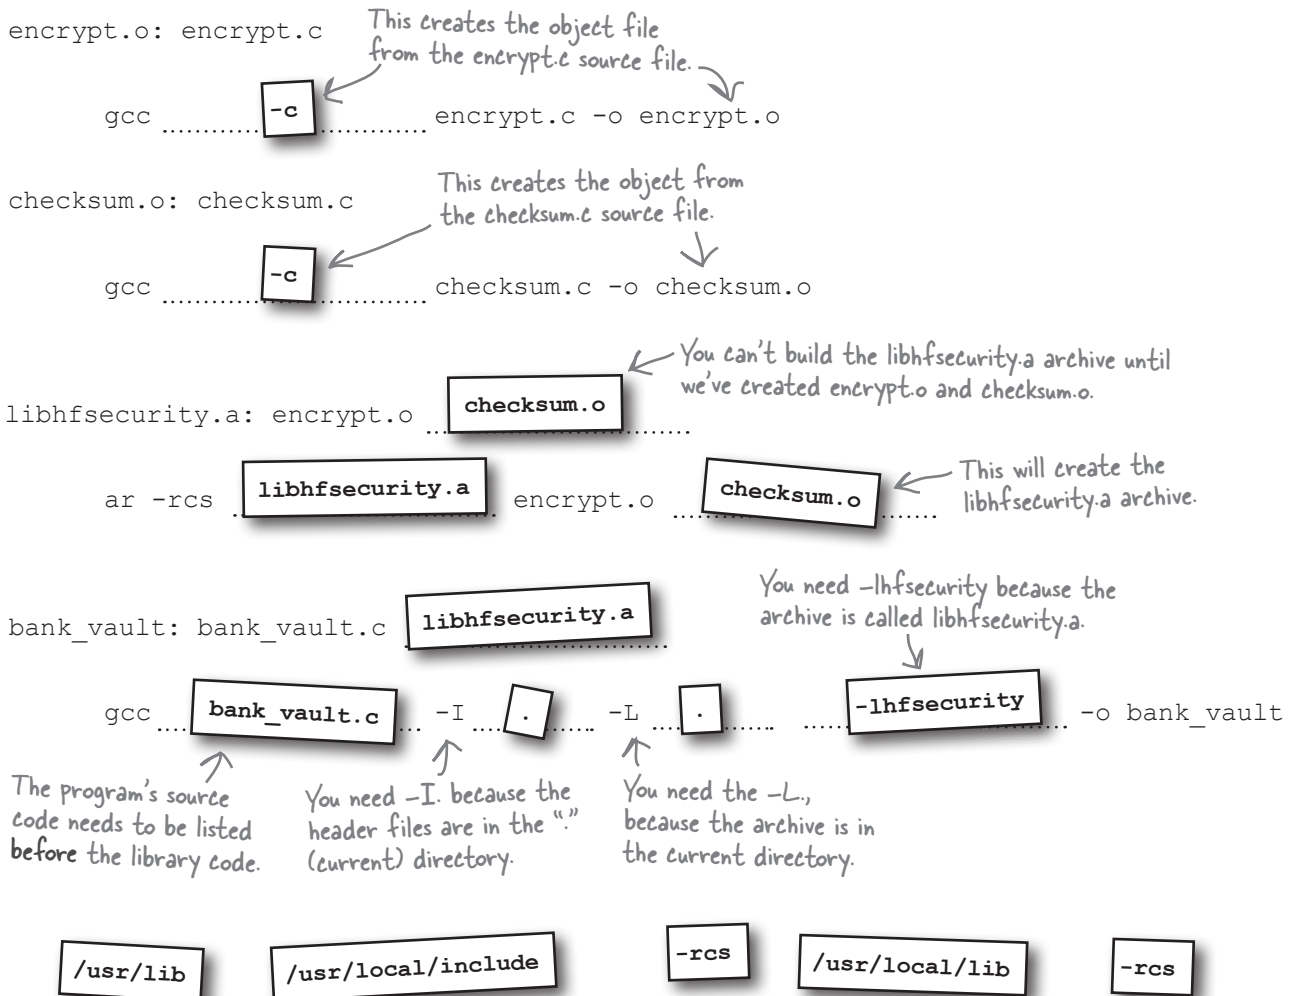 encrypt.o: encrypt.c
This creates the object file
from the encrypt.c source file.
gcc -c encrypt.c -o encrypt.o
checksum.o: checksum.c
This creates the object from
the checksum.c source file.
gcc -c checksum.c -o checksum.o
You can't build the libhfsecurity.a archive until
we've created encrypt.o and checksum.o.
libhfsecurity.a: encrypt.o checksum.o
ar -rcs libhfsecurity.a encrypt.o checksum.o
This will create the
libhfsecurity.a archive.
You need –lhfsecurity because the
archive is called libhfsecurity.a.
bank_vault: bank_vault.c libhfsecurity.a
gcc bank_vault.c -I . -L . -lhfsecurity -o bank_vault
The program's source
code needs to be listed
before the library code.
You need –I. because the
header files are in the “.”
(current) directory.
You need the –L.,
because the archive is in
the current directory.
/usr/lib
/usr/local/include
-rcs
/usr/local/lib
-rcs